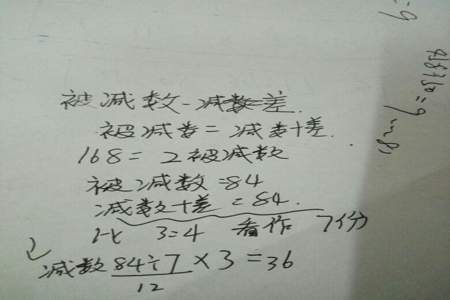 被减数-减数=差.
被减数=减数+差.
168=2被减数
被减数=84
减数+差=84.
比 3=4 看作 7份
减数 84÷7×3=36
12